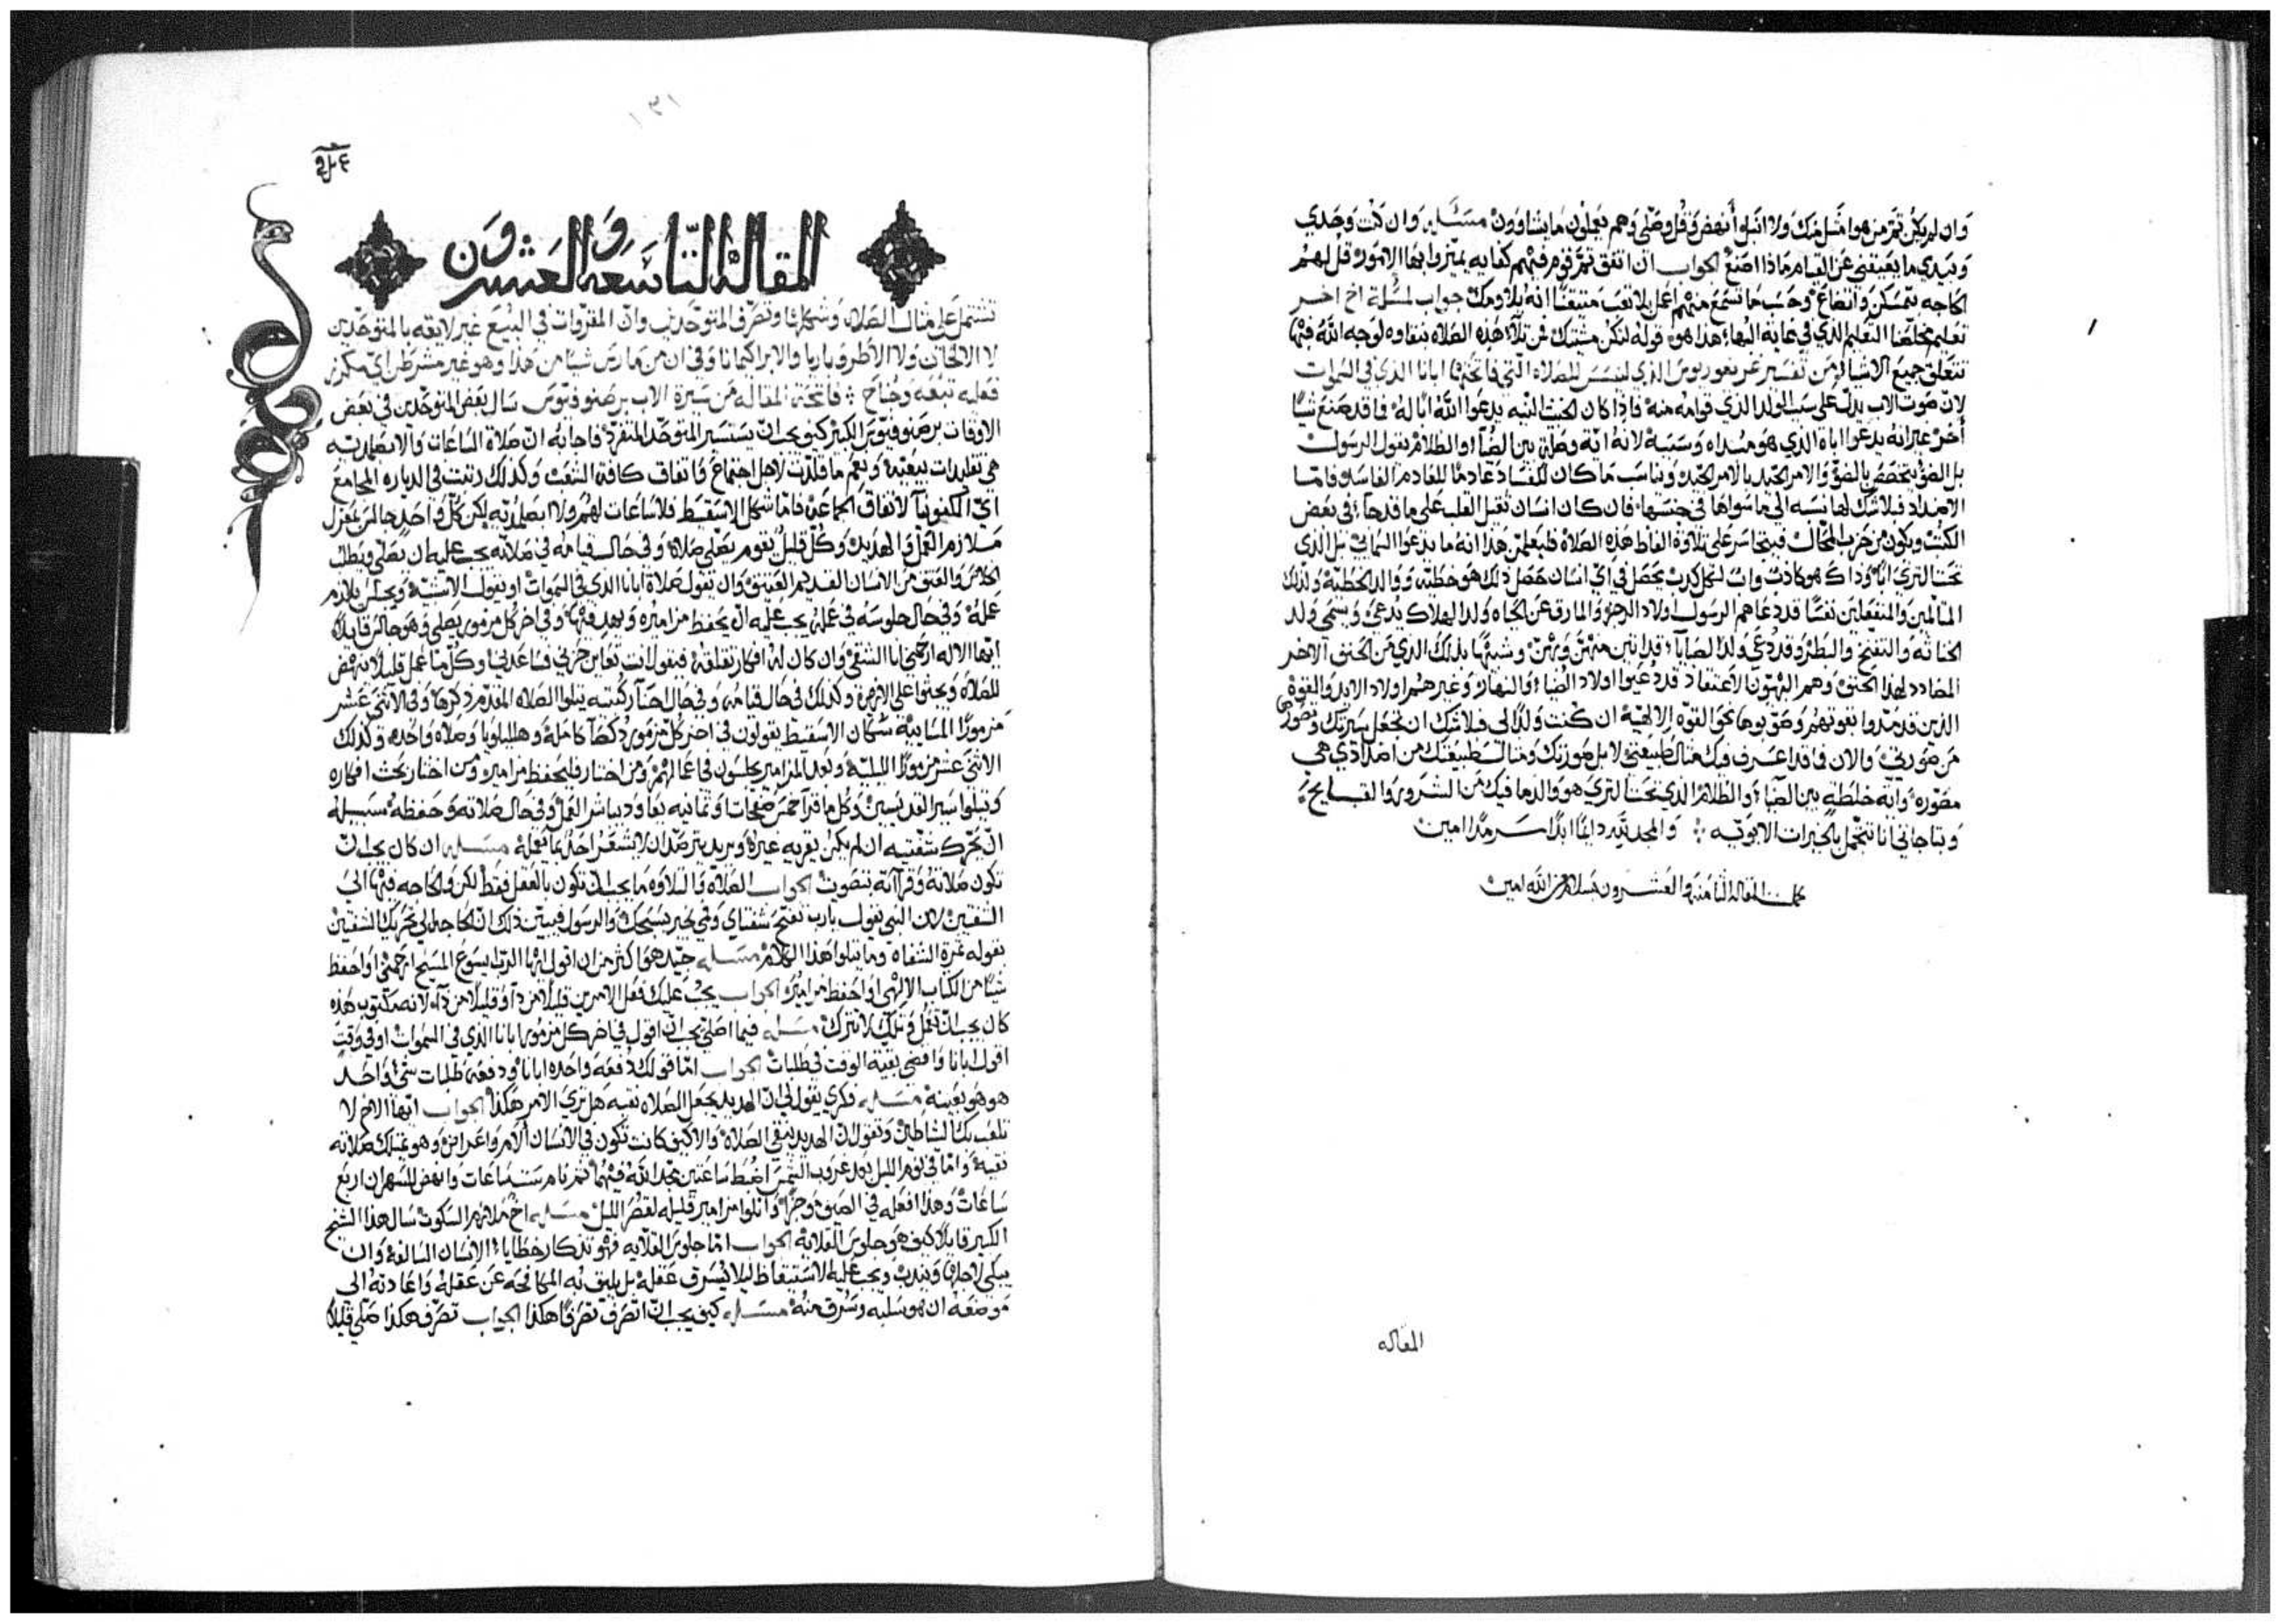 وان لم يكن ثم من هو امثل منك ولا انبل أنهض وقُل وصلّي وهم يفعلون ما يشاوون مسئله وان كنت وحدي
وبيدي ما يعيقني عن القيام ماذا اصنع الجواب ان اتفق ثم قوم فيهم كفايه يميزوا بها الامور قل لهم
الحاجه بتمسكن واتضاع وحسب ما تسمع منهم اعمل بلا تعب متيقنًا انه بلا ومك جواب لمسئلة اخ اخر
تعليم مخلصنا التعليم الذي في غاية البهاء هذا هو قوله لتكن مشيتك فمن تلا هذه الصلاه بنقاوه لوجه الله فيها
تتعلق جميع الاشياء من تفسير غريغوريوس الذي لنيسس للصلاه التي فاتحتها ابانا الذي في السموات
لان صوت الاب يدل على سبب الولد الذي قوامه منه فاذا كان الخبيث النيه يدعوا الله ابًا له فاقد صنع شيًا
أخر غير انه يدعوا اباه الذي هو مبداه وسببه لانه اية وصلة بين الضياء والظلام يقول الرسول
بل الضوّ يتخصص بالضوّ والامر الجيّد بالامر الجيّد ويناسب ما كان للفساد عادمًا للعادم الفاسد فاما
الاضداد فلا شك لها نسبه الى ما سواها في جنسها فان كان انسان ثقيل القلب على ما قد جاء في بعض
الكتب ويكون من حزب المحال فيتجاسر على تلاوة الفاظ هذه الصلاة فليعلمن هذا انه ما يدعوا السمايي بل الذي
تحت الثرى ابًا وذاك هو كاذب واب لكل كذب يحصل في اي انسان حصل ذلك هو خطيه ووالد الخطيّة ولذلك
المتالمين والمنفعلين نفسًا قد دعاهم الرسول اولاد الرجز والمارق عن الحياه ولد الهلاك يُدعى ويسمى ولد
المضادد لهذا الجنس وهم البهيّون الاعتقاد قد دُعيوا اولاد الضياء والنهار وغيرهم اولاد الابد والقوة
الذين قد شدّوا بقوتهم وصوّبوها نحو القوّه الالهيّة ان كنت ولدًا لي فلا شك ان تجعل سيرتك وتصورها
من صورتي والان
مصوّره واية خلطة بين الضياء والظلام الذي تحت الثرى هو والدها فيك من الشرور والقبايح
وتباجاني انا تتجمّل بالخيرات الابويّه والمجد لله دايمًا ابدًا سرمدًا امين
كملت المقاله الثامنه والعشرون بسلام من الله امين
المقاله
١٣١
المقالة التاسعه والعشرون
تشتمل على مثال الصلاه وشكلها وتصرف المتوحدين وان المقروات في البيع غير لايقه بالمتوحّدين
لا الالحان ولا الاطروباريا والابراكيمانا وفي ان من مارس شيًا من هذا وهو غير مشرطن اي مكرز
فعليه تبعه وجناح فاتحة المقاله من سيرة الاب برصنوفيوس سال بعض المتوحدين في بعض
الاوقات برصنوفيوس الكبير كيف يجب ان يستسير المتوحّد المتفرّد فاجابه ان صلاة الساعات والابصلمديه
هي تقليدات بيعيّة ونِعم ما قلدت لاجل اجتماع واتفاق كافة الشعب وكذلك رتبت في الدياره المجامع
اي الكنوبيا لاتفاق الجماعة فاما شكل الاسقيط فلا ساعات لهم ولا ابصلمديه لكن كل واحد جالس بمعزل
ملازم العمل والهذيذ وكل قليل يقوم يصلي صلاة وفي حال قيامه في صلاته يجب عليه ان يصلي ويطلب
الخلاص والعتق من الانسان القديم العتيق وان يقول صلاة ابانا الذي في السموات او يقول الاثنتيه ويجلس يلازم
عمله وفي حال جلوسه في عمله يجب عليه ان يحفظ مزاميره ويهذ فيها وفي اخر كل مزمور يصلي وهو جالس قايلًا
ايها الاله ارحمني انا الشقي وان كان له افكار تقلقه فيقول انت تعاين حزني فساعدني وكل ما عمل قليلًا ينهض
للصلاة ويجثوا على الارض وكذلك في حال قيامه وفي حال احناء ركبته يتلوا الصلاه المقدّم ذكرها وفي الاثني عشر
مزمورًا المسايية سكان الاسقيط يقولون في اخر كل مزمور ذكصا كامله وهلليلويا وصلاه واحده وكذلك
الاثني عشر مزمورًا الليليّه وبعد المزامير يجلسون في اعمالهم ومن اختار فليحفظ مزاميره ومن اختار بحث افكاره
وتلوا سير القديسين وكل ما قرا خمس صفحات او ثمانيه يعاود يباشر العمل وفي حال صلاته وحفظه سبيله
ان يحرك شفتيه ان لم يكن بقربه غيره ويريد يترصد ان لا يشعر احد بما يعمله مسئله ان كان يجب ان
تكون صلاته وقرااته بتصويت الجواب الصلاة والتلاوه ما يجب ان تكون بالعقل فقط لكن والحاجه فيها الى
الشفتين لان النبي يقول يارب تفتح شفتاي وفمي يخبر بتسبحتك والرسول فيبيّن ذلك ان الحاجه الى تحريك الشفتين
بقوله ثمرة الشفاه وما يتلوا هذا الكلام مسئله جيّد هو اكثر من ان اقول ايها الرب ايسوع المسيح ارحمني او احفظ
شيًا من الكتاب الالهي او احفظ مزاميرك الجواب يجب عليك فعل الامرين قليلًا من ذا وقليلًا من ذاه لانه مكتوب هذه
كان يجب ان تعمل وتلك لا تترك مسئله فيما اصلي يجب ان اقول في اخر كل مزمور ابانا الذي في السموات او في وقتٍ
اقول ابانا وامضي بقية الوقت في طلبات الجواب اما قولك دفعه واحده ابانا ودفعة طلبات شيء واحد
هو هو بعينه مسئله فكري يقول لي ان الهذيذ يجعل الصلاه نقيه هل ترى الامر هكذا الجواب ايها الاخ لا
تلعب بك الشياطين وتقول ان الهذيذ ينقي الصلاة والا كيف كانت تكون في الانسان ألام واعراض وهو يمتلك صلاته
نقيه واما في نوم الليل بعد غروب الشمس اضبط ساعتين مجد الله فيهما ثم نام ست ساعات وانهض للسهران اربع
ساعات وهذا افعله في الصيف وجيزًا واتلوا مزامير قليله لقصر الليل مسئله اخ ملازم السكوت سال هذا الشيخ
الكبير قايلًا كيف هو جلوس القلاية الجواب اما جلوس القلايه فهو تذكار خطايا الانسان السالفه وان
يبكي لاجلها ويندب ويجب عليه الاستيقاظ ليلا يُسرق عقله بل يليق به المكافحه عن عقله واعادته الى
موضعه ان هو سلبه وسُرق منه مسئله كيف يجب ان اتصرّف تصرفًا هكذا الجواب تصرّف هكذا صلّي قليلًا